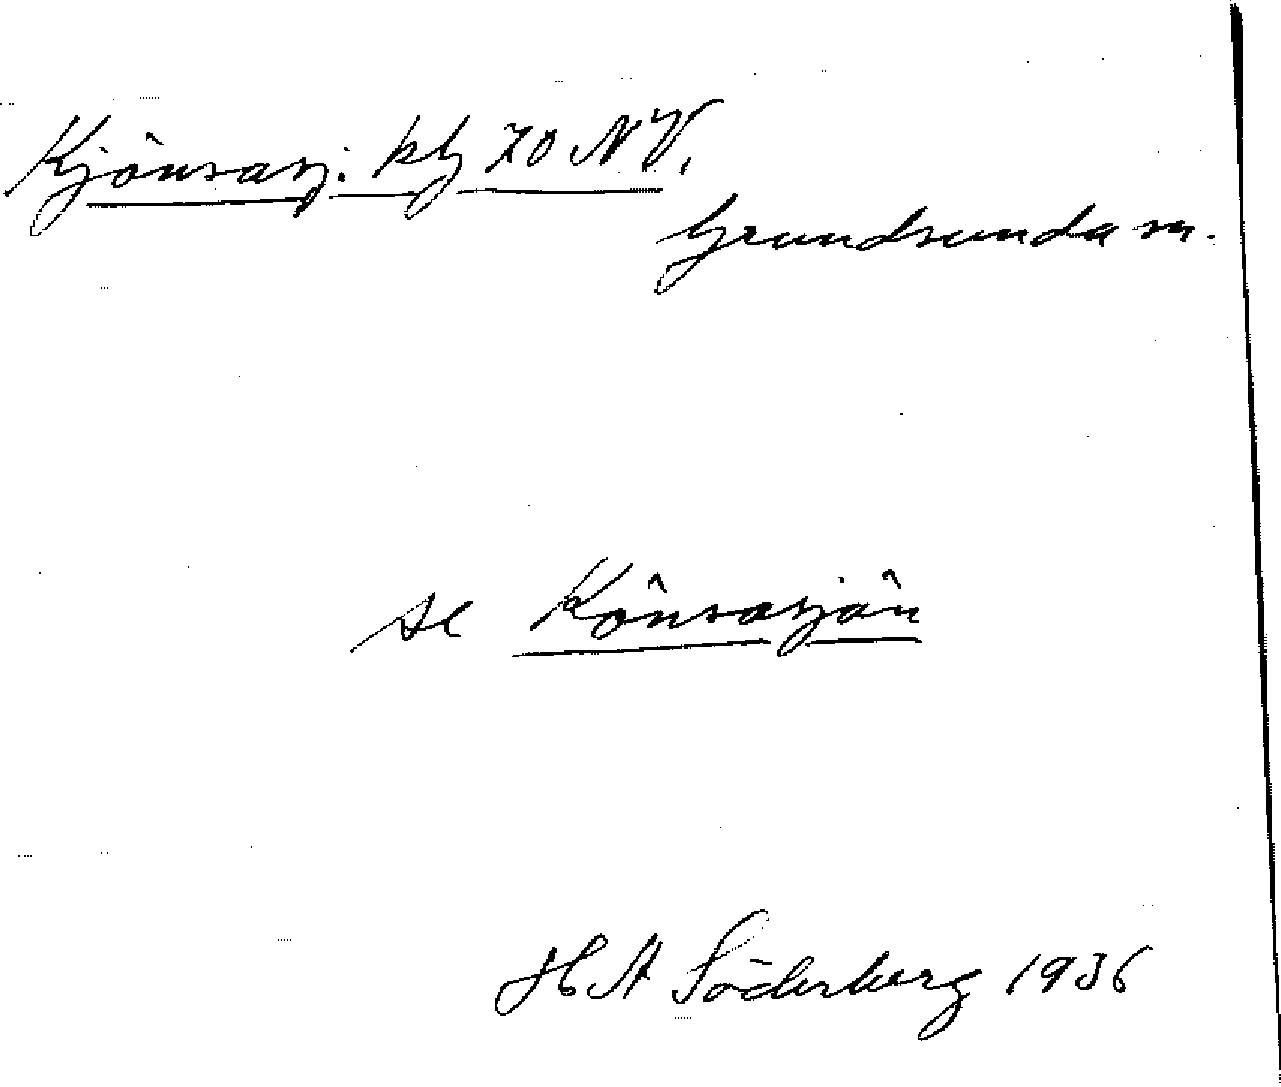 Kjönsasj. kbl 70 NV.
Grundsunda sn.
se Könsasjön
HA Söderberg 1936